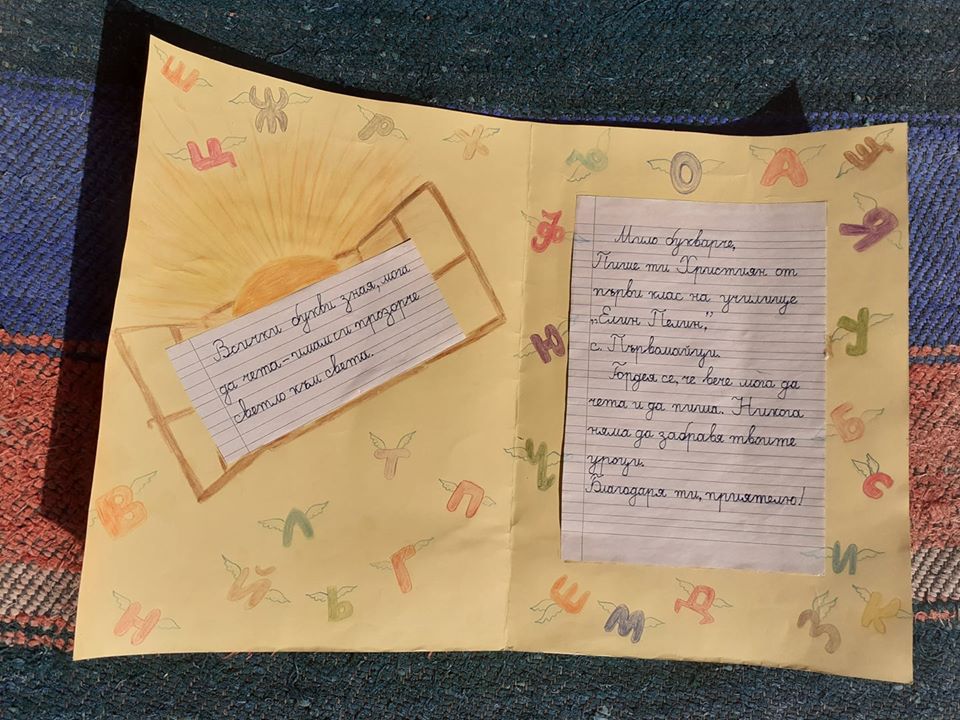 Всички букви зная, мога
да чета - имам си прозорче
светло към света.
Мило букварче,
Пише ти Християн от
първи клас на училище
„Елин Пелин",
с. Първомайци.
Гордея се, че вече мога да
чета и да пиша. Никога
няма да забравя твоите
уроци.
Благодаря ти, приятелю!
Ш
Ж
Р
Х
Ц
О
А
Щ
Я
Ф
Ю
У
Ч
Ъ
С
Т
В
Л
П
Й
Г
Н
Ь
И
Е
М
Д
З
К